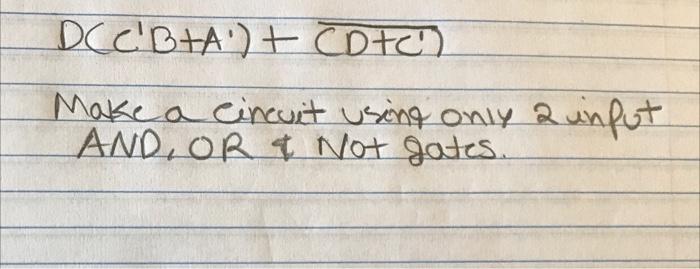 D(C'B+A') + \overline{(D+C')}
Make a circuit using only 2 input
AND, OR & Not gates.